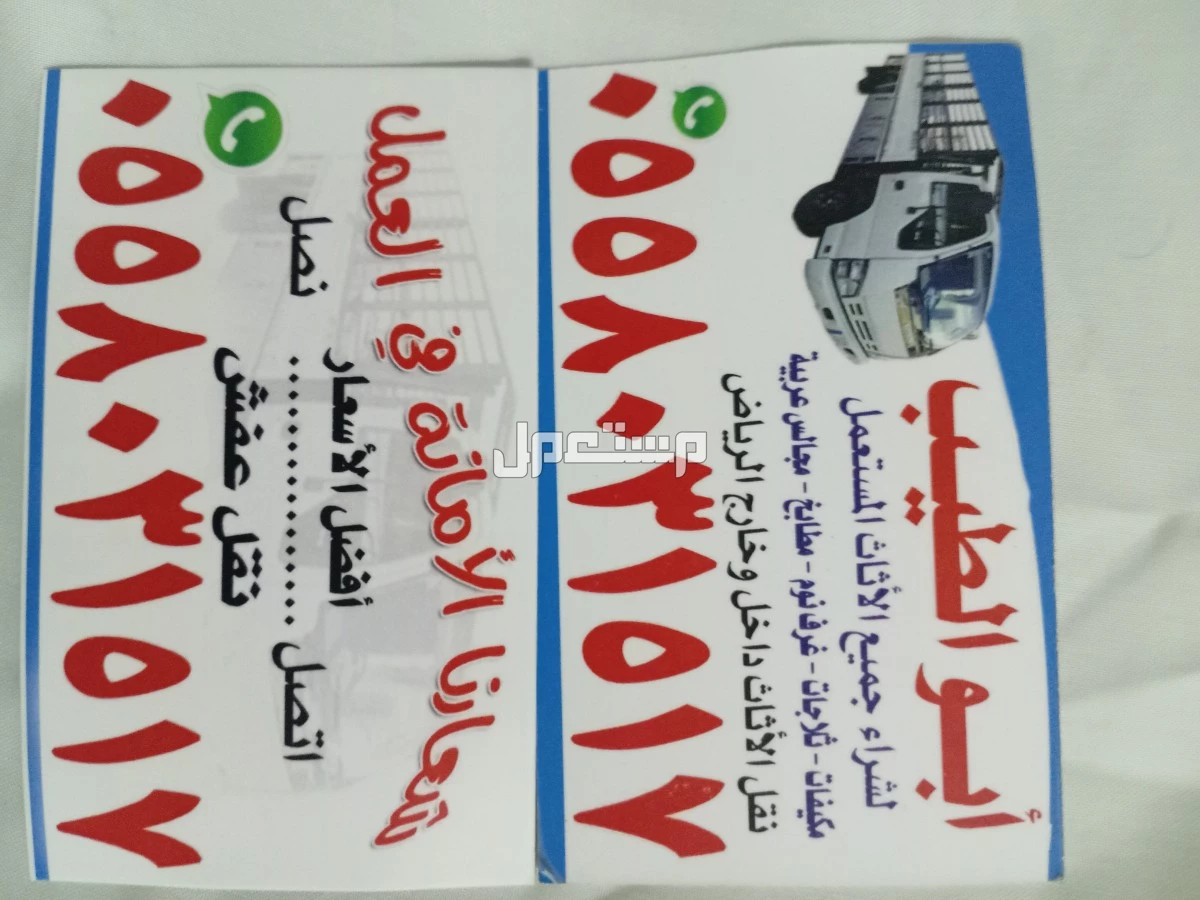 أبو الطيب
لشراء جميع الأثاث المستعمل
مكيفات - ثلاجات - غرف نوم - مطابخ - مجالس عربية
نقل الأثاث داخل وخارج الرياض
٠٥٥٨٠٣١٥١٧
شعارنا الأمانة في العمل
أفضل الأسعار
اتصل .............. نصل
نقل عفش
٠٥٥٨٠٣١٥١٧
مستعمل